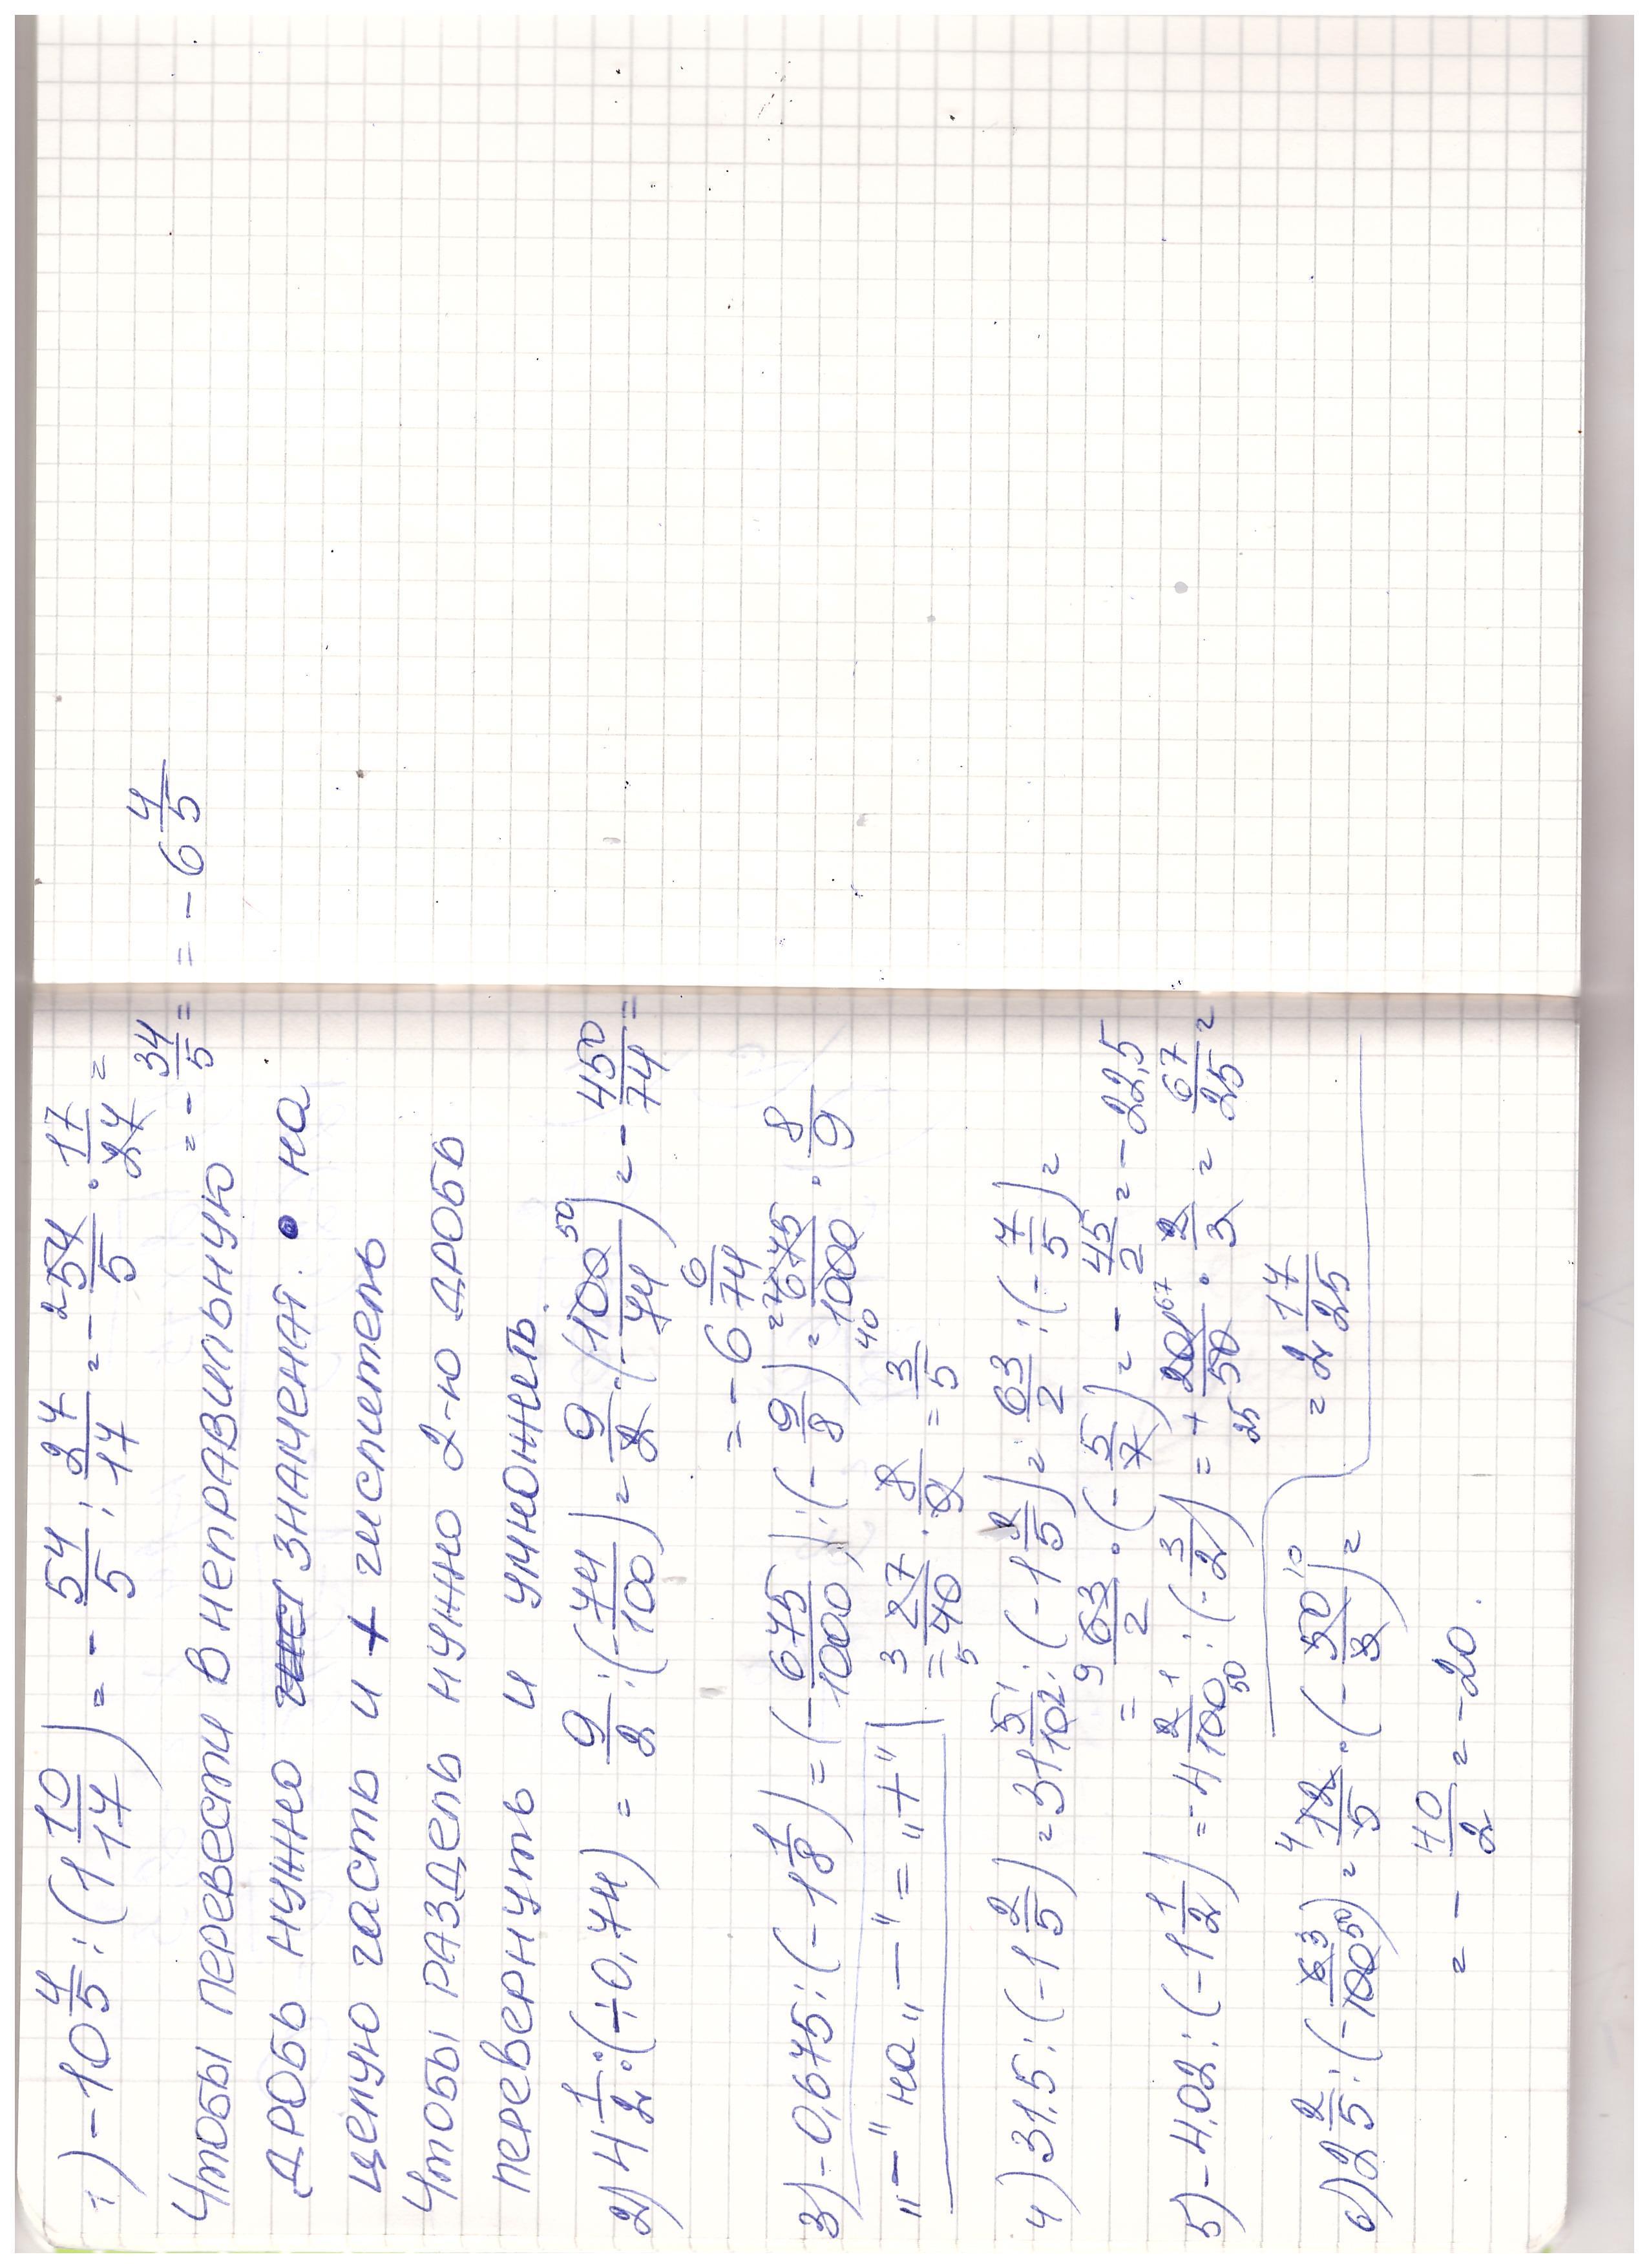 1) -10 4/5 : (1 10/17) = - 54/5 : 27/17 = - 2 54/5 · 17/27 =
= - 34/5 = = - 6 4/5
Чтобы перевести в неправильную
дробь нужно знаменат. • на
целую часть и + числитель
Чтобы раздель нужно 2-ю дробь
перевернуть и умножить.
2) 4 1/2 : (-0,74) = 9/2 : (-74/100) = 9/2 · (-100 50/74) = - 450/74 =
= - 6 6/74
3) -0,675 : (-1 1/8) = (-675/1000) : (-9/8) = 27 675/1000 40 · 8/9
"-" на "-" = "+" = 3 27/5 40 · 8/9 = 3/5
4) 31,5 : (-1 2/5) = 31 5 1/10 2 : (-1 2/5) = 63/2 : (-7/5) =
= 9 63/2 · (-5/7) = - 45/2 = - 22,5
5) -4,02 : (-1 1/2) = -4 2 1/100 50 : (-3/2) = + 201 67/25 50 · 2/3 = 67/25 =
= 2 17/25
6) 2 2/5 : (-6 3/100 50) = 4 12/5 · (-50 10/3) =
= - 40/2 = -20.